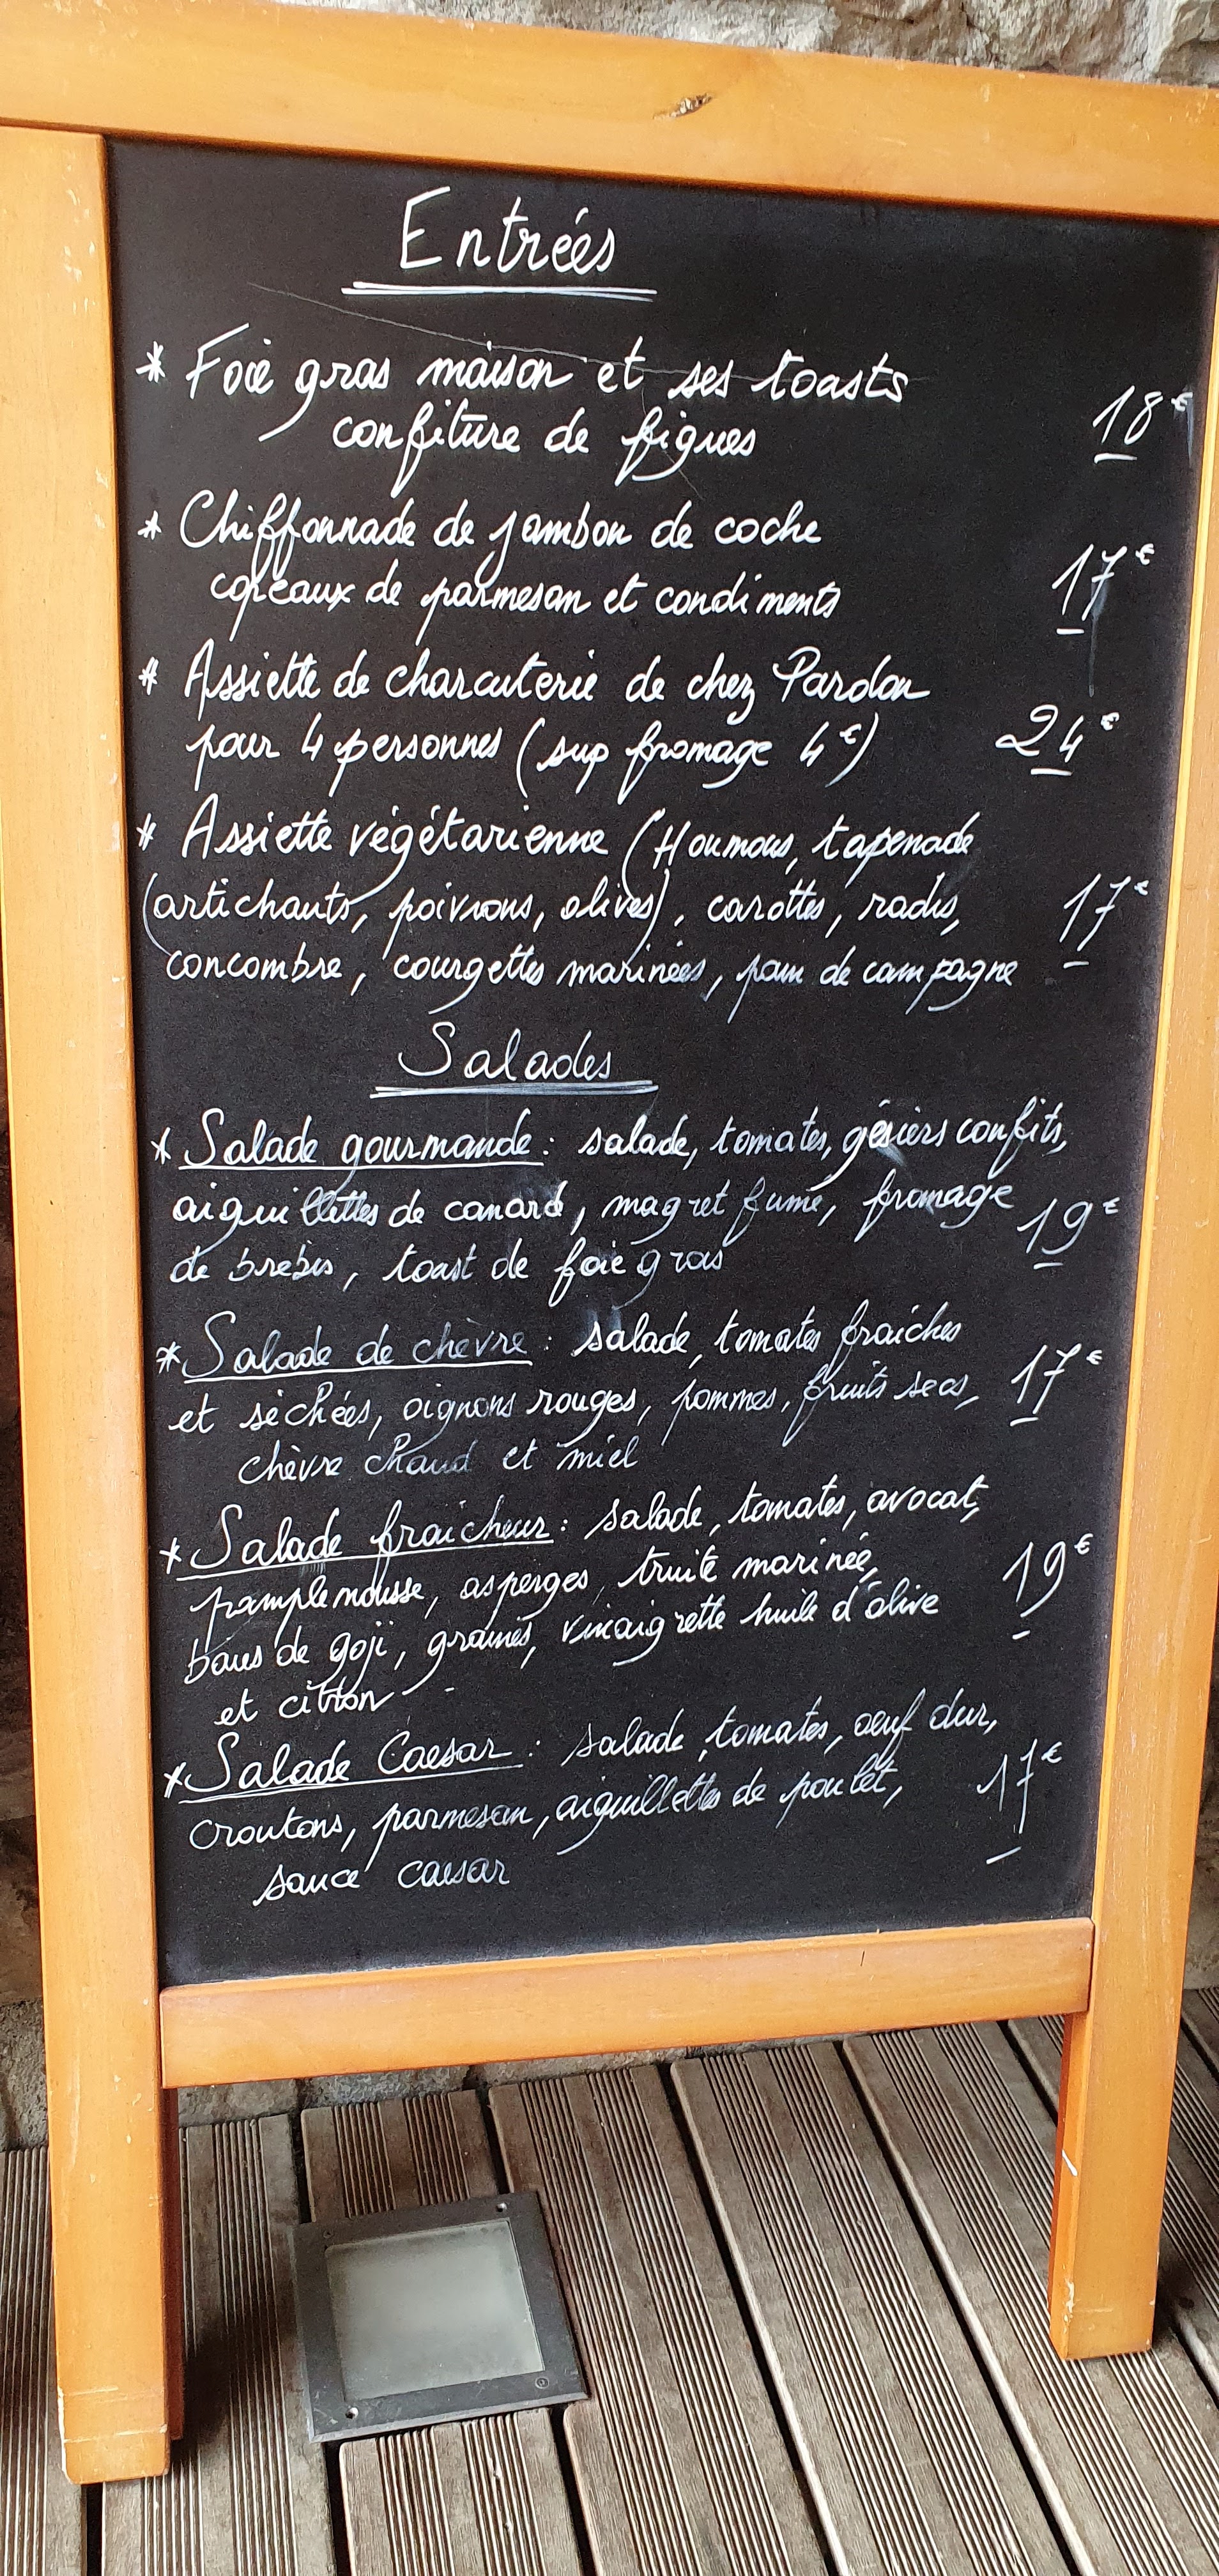 Entrées
* Foie gras maison et ses toasts
confiture de figues 18€
* Chiffonnade de jambon de coche
copeaux de parmesan et condiments 17€
* Assiette de charcuterie de chez Pardon
pour 4 personnes (sup fromage 4€) 24€
* Assiette végétarienne (Houmous, tapenade
(artichauts, poivrons, olives), carottes, radis, 17€
concombre, courgettes marinées, pain de campagne
Salades
* Salade gourmande : salade, tomates, gésiers confits,
aiguillettes de canard, magret fumé, fromage 19€
de brebis, toast de foie gras
* Salade de chèvre : salade, tomates fraiches
et séchées, oignons rouges, pommes, fruits secs, 17€
chèvre chaud et miel
* Salade fraicheur : salade, tomates, avocat,
pamplemousse, asperges, truite marinée, 19€
baies de goji, graines, vinaigrette huile d'olive
et citron
* Salade Caesar : salade, tomates, oeuf dur,
croutons, parmesan, aiguillettes de poulet, 17€
sauce caesar